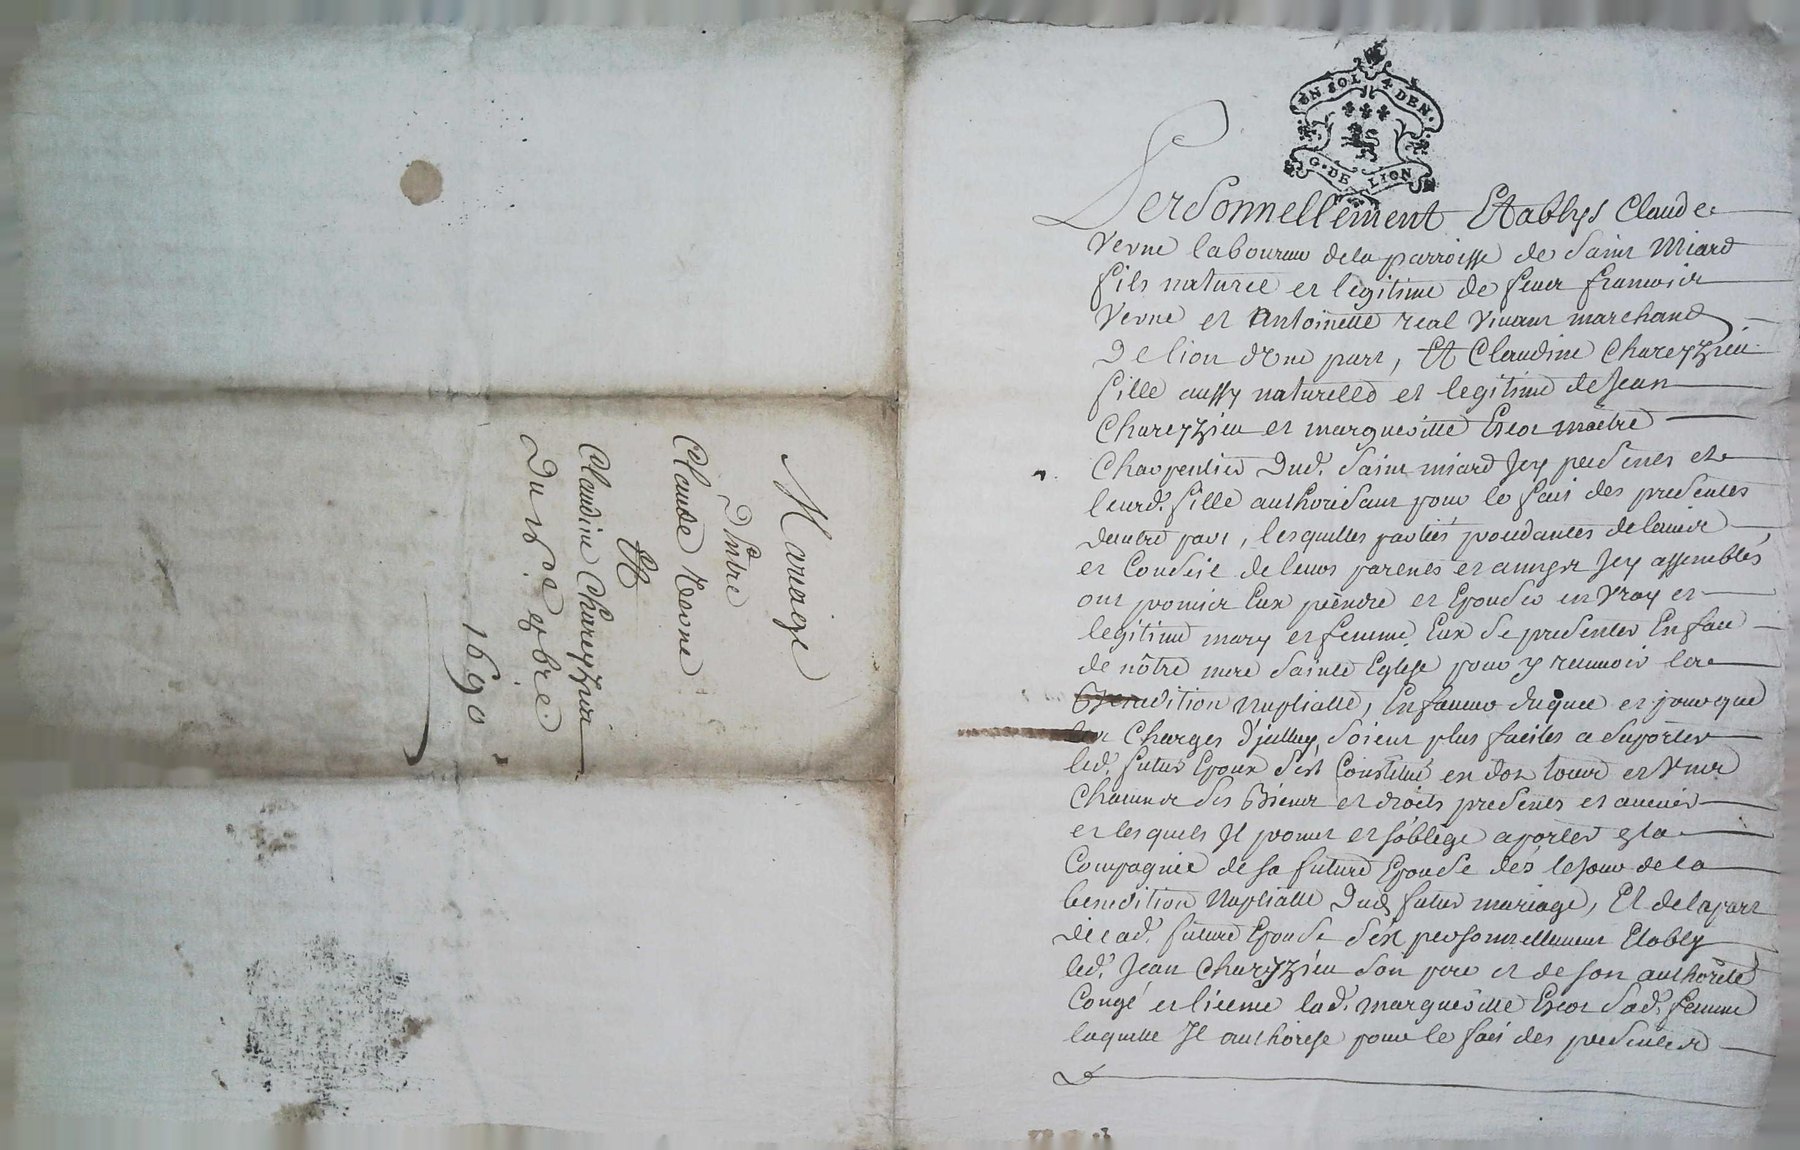 Mariage
D'Entre
Claude Verne
Et
Claudine Chareyzieu
Du 8e 9bre
1690
UN SOL 4 DEN.
G. DE LION
Personnellement Etablys Claude
Verne laboureur dela parroisse de Saint Miard
fils naturel et legitime de feuer francois
Verne et Antoinette real vivant marchand
De lion d'une part, Et Claudine Chareyzieu
fille aussy naturelle et legitime de Jean
Chareyzieu et margueritte Escot maître
Charpentier Dud. Saint miard Jcy presents et
leurd. fille authorisant pour le fait des presentes
dautre part, lesquelles parties procedantes de l'avis
et Conseil de leurs parents et amys Jcy assemblés
ont promis Eux prendre et Epouser en vray et
legitime mary et femme, Eux se presenter En face
de nôtre mere Sainte Eglise pour y recevoir la
Benedition Nuptialle, En faveur duquel et pour que
les Charges d'jcelluy soient plus faciles a suporter
led. futur Epoux s'est Constitué en dot tous et Uns
Chacuns ses Biens et droits presents et avenir
et lesquels Jl promet et s'oblige aporter en la
Compagnie de sa future Epouse dés le jour de la
benedition Nuptialle Dud. futur mariage, Et de la part
de lad. future Epouse s'est personnellement Etably
led. Jean Chareyzieu son pere et de son authorité
Congé et licence lad. margueritte Escot Sad. femme
laquelle Jl authorise pour le fait des presentes